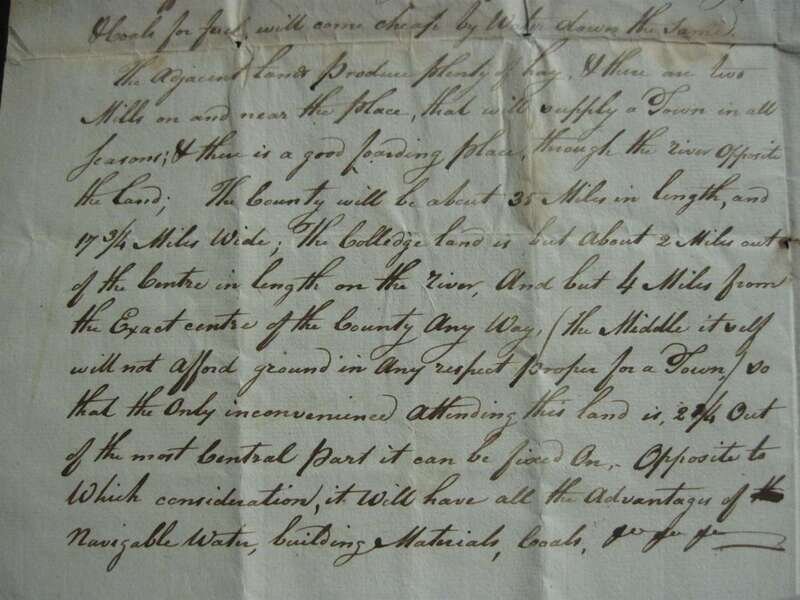 & Coals for fuel will come cheap by Water down the Same,
The Adjacent lands produce plenty of hay, & there are two
Mills on and near the place, that will supply a Town in all
Seasons; & there is a good foarding place, through the river Opposite
the land; The County will be about 35 Miles in length, and
17 3/4 Miles Wide; The Colledge land is but About 2 Miles out
of the Centre in length on the river, And but 4 Miles from
the Exact centre of the County Any Way, (the Middle itself
will not afford ground in Any respect proper for a Town) so
that the Only inconvenience Attending this land is, 2 3/4 Out
of the most Central Part it can be fixed On,- Opposite to
Which consideration, it Will have all the Advantages of
Navigable Water, building Materials, Coals,